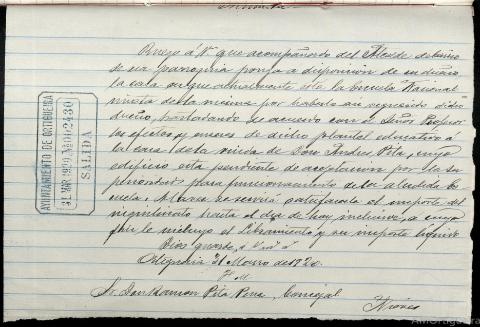 Ruego á V. que acompañando del Alcalde de barrio
de esa parroquia ponga a disposición de su dueño
la casa en que actualmente está la Escuela Nacional
mixta de la misma por haberlo así requerido dicho
dueño, trasladando de acuerdo con el Señor Profesor
los efectos y enseres de dicho plantel educativo á
la casa de la viuda de Don Andrés Pita, cuyo
edificio está pendiente de aceptación por la Su
perioridad para funcionamiento de la aludida Es
cuela. Al mismo se servirá satisfacerle el importe del
hasta el día de hoy inclusive, a cuyo
fin le incluyo el libramiento y su importe
Dios guarde á Vd. á
Ortigueira 31 Marzo de 1920.
Sr. Don Ramon Pita Pena, Concejal
AYUNTAMIENTO DE ORTIGUEIRA
31 MAR 1920 № 002430
SALIDA